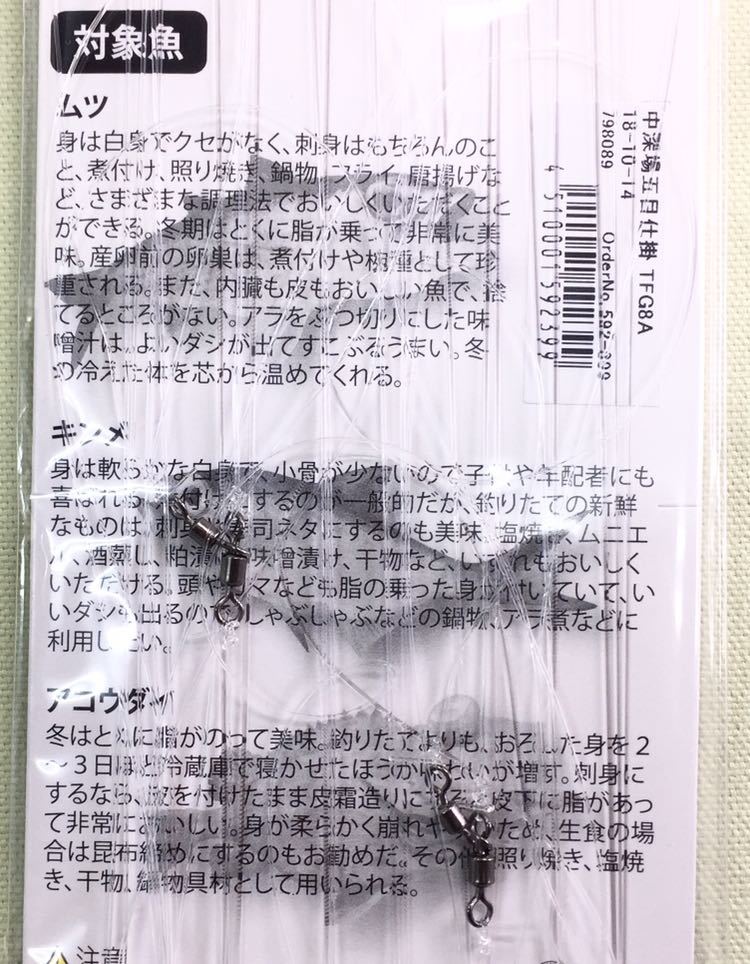 対象魚
ムツ
身は白身でクセがなく、刺身はもちろんのこ
と、煮付け、照り焼き、鍋物、フライ、唐揚げな
ど、さまざまな調理法でおいしくいただくこと
ができる。冬期はとくに脂が乗って非常に美
味。産卵前の卵巣は、煮付けや椀種として珍
重される。また、内臓も皮もおいしい魚で、捨
てるところがない。アラをぶつ切りにした味
噌汁は、よいダシが出てすこぶるうまい。冬
の冷えた体を芯から温めてくれる。
中深場五目仕掛 TFG8A
18-10-14
798089
OrderNo. 592-399
4 510001592399
キンメ
身は軟らかな白身で、小骨が少ないので子供や年配者にも
喜ばれる。煮付けにするのが一般的だが、釣りたての新鮮
なものは、刺身や寿司ネタにするのも美味。塩焼き、ムニエ
ル、酒蒸し、粕漬け、味噌漬け、干物など、いずれもおいしく
いただける。頭やカマなども脂の乗った身が付いていて、い
いダシも出るので、しゃぶしゃぶなどの鍋物、アラ煮などに
利用したい。
アコウダイ
冬はとくに脂がのって美味。釣りたてよりも、おろした身を２
～３日ほど冷蔵庫で寝かせたほうが味わいが増す。刺身に
するなら、皮を付けたまま皮霜造りにする。皮下に脂があっ
て非常においしい。身が柔らかく崩れやすいため、生食の場
合は昆布締めにするのもお勧めだ。その他、照り焼き、塩焼
き、干物、鍋物具材として用いられる。
注意